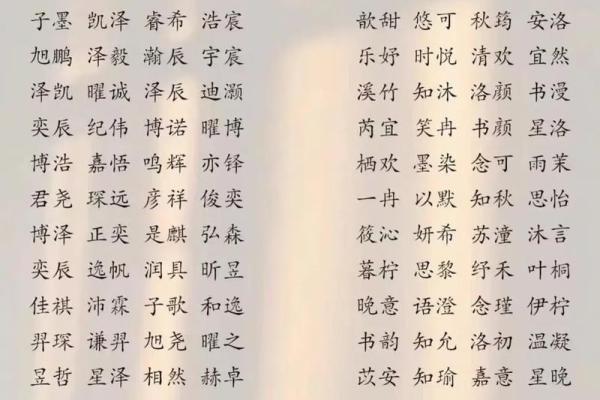 子墨 凯泽 睿希 浩宸 歆甜 悠可 秋筠 安洛
旭鹏 泽毅 瀚辰 宇宸 乐妤 时悦 清欢 宜然
泽凯 曜诚 泽辰 迪灏 溪竹 知沐 洛颜 书漫
奕辰 纪伟 博诺 曜博 芮宜 笑冉 书颜 星洛
博浩 嘉悟 鸣辉 亦铎 栖欢 墨染 念可 雨茉
君尧 琛远 彦祥 俊奕 一冉 以默 知秋 思怡
博泽 正奕 是麒 弘森 筱沁 妍希 苏潼 沐言
奕辰 逸帆 润具 昕昱 暮柠 思黎 纾禾 叶桐
佳祺 沛霖 子歌 和逸 晚意 语澄 念瑾 伊柠
羿琛 谦羿 旭尧 曜之 书韵 知允 洛初 温凝
昱哲 星泽 相然 赫卓 苡安 知瑜 嘉意 星晚